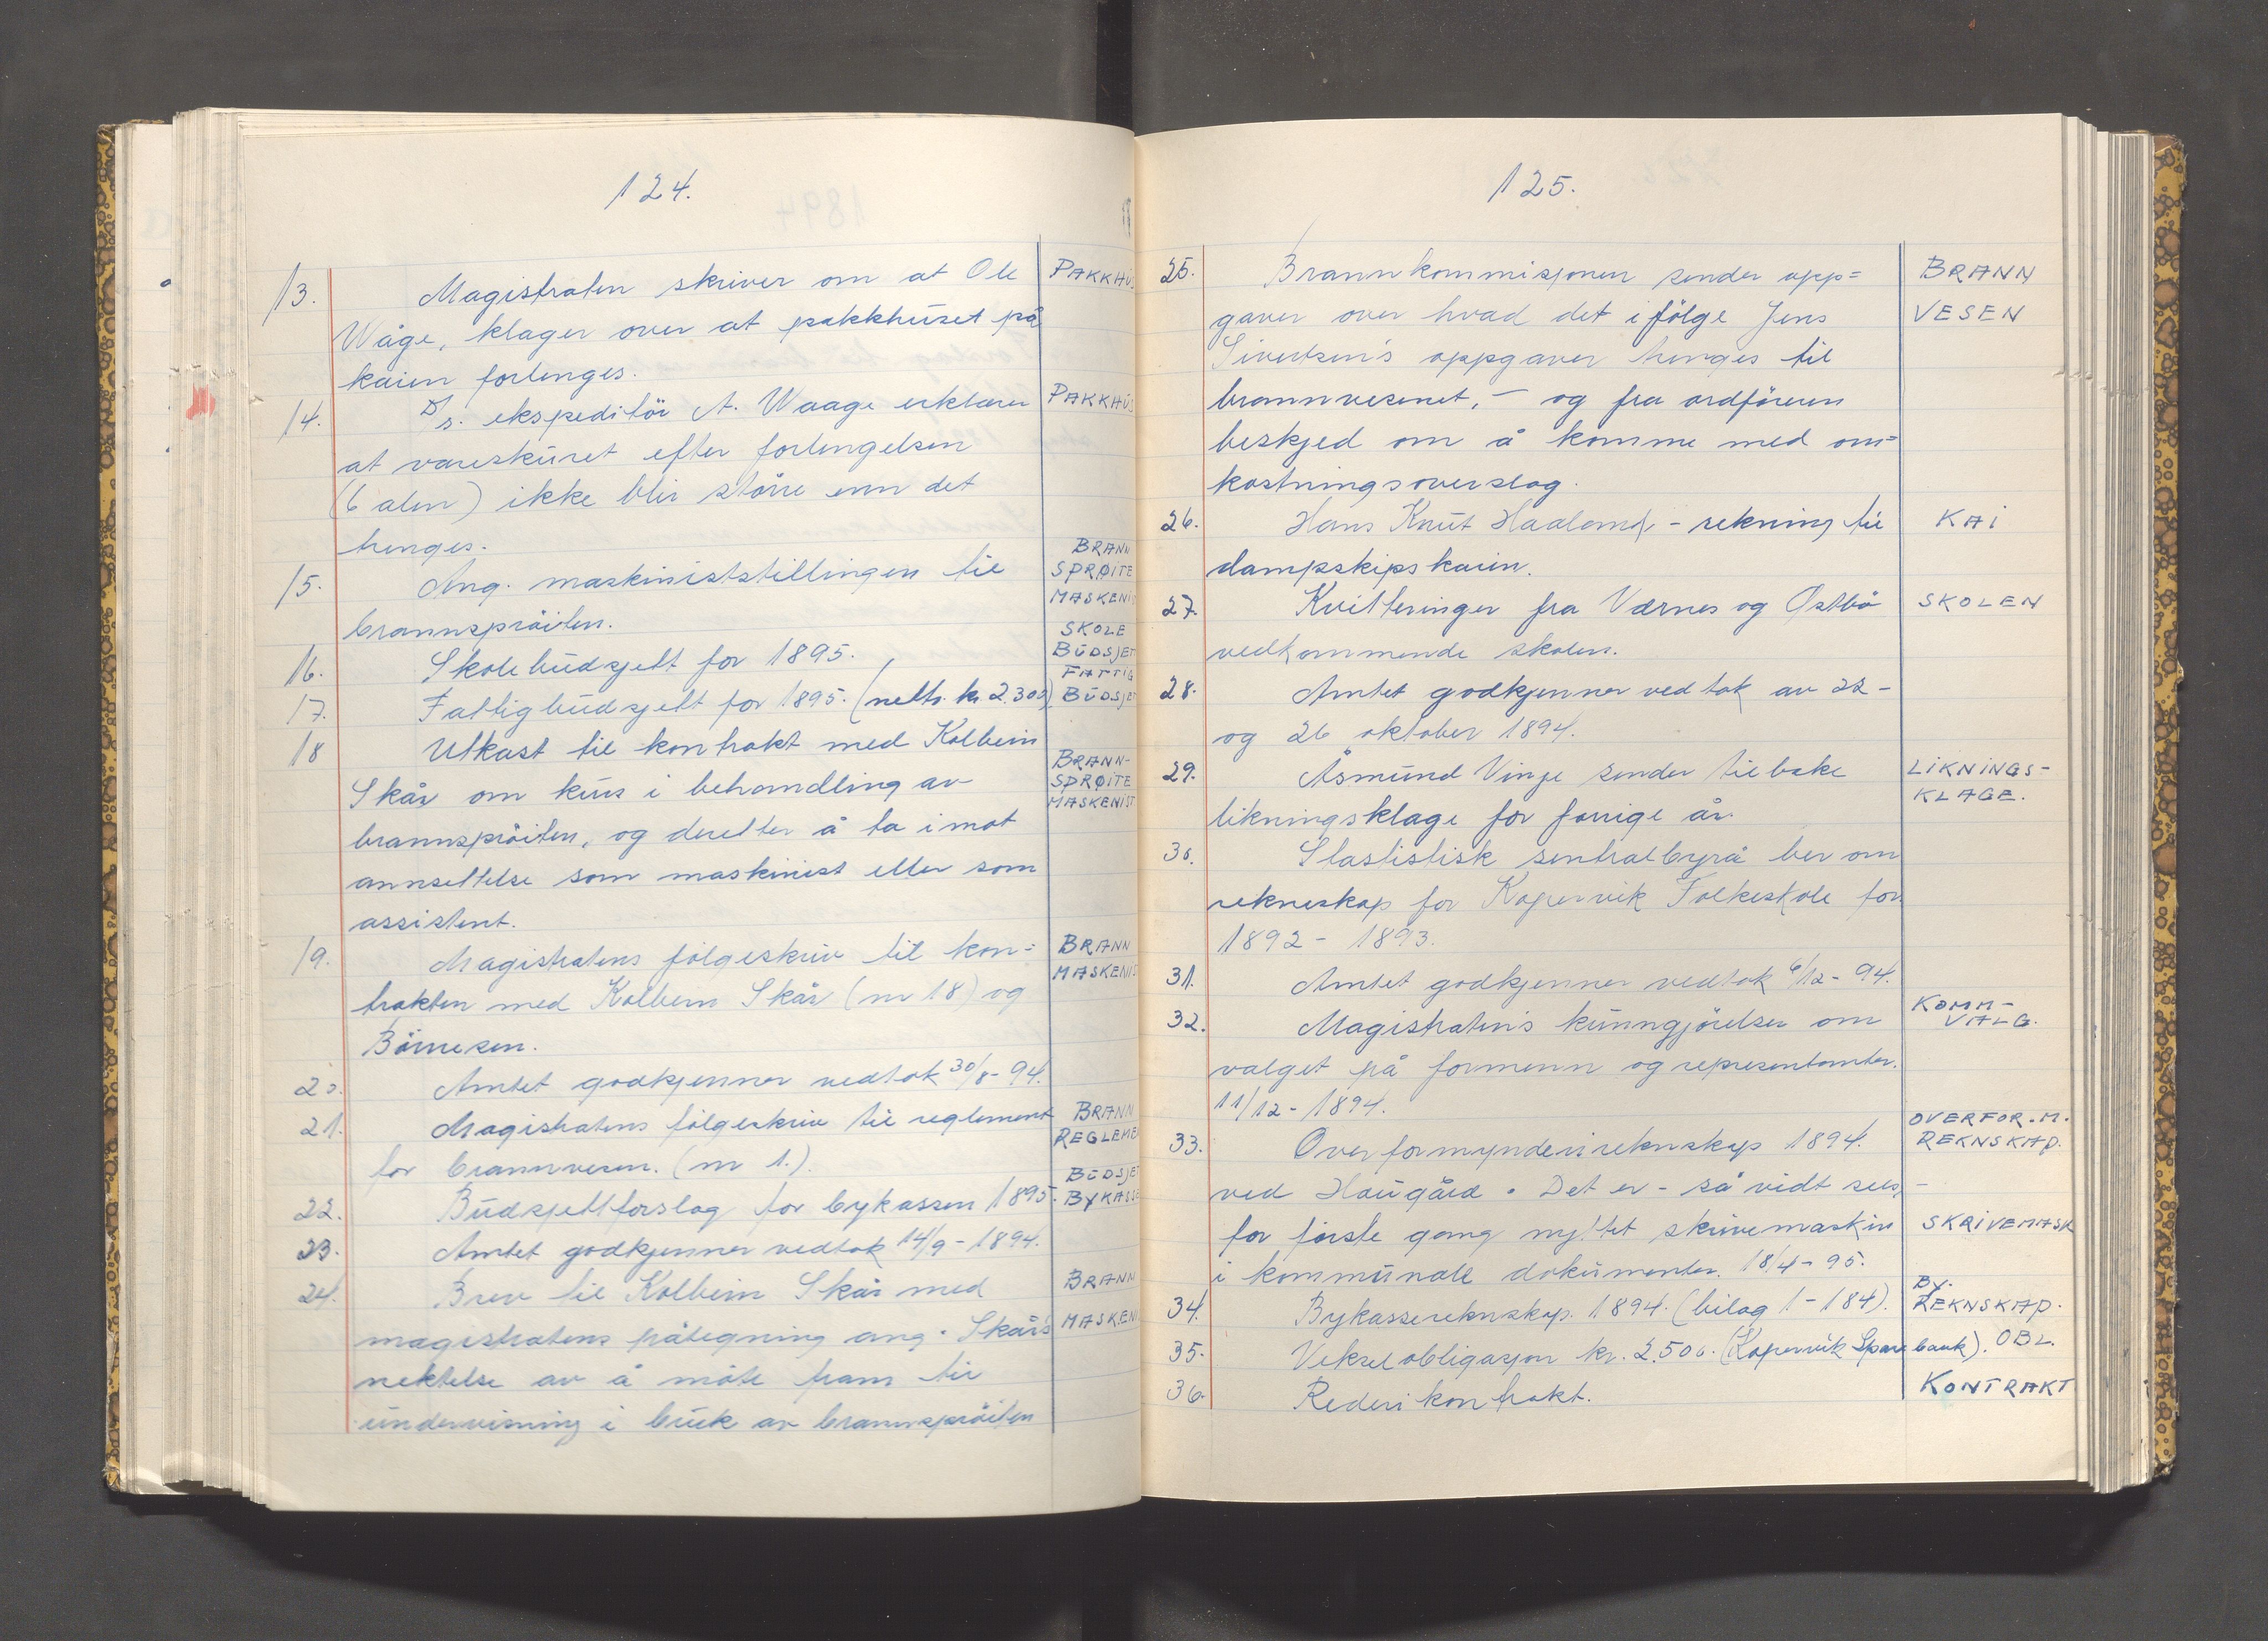 124.
13. Magistraten skriver om at Ole PAKKHÙS
Wåge, klager over at pakkhuset på
kaien forlenges.
14. D/s. ekspeditör A. Waage erklærer PAKKHUS
at vareskuret efter forlengelsen
(6 alen) ikke blir större enn det
trenges.
15. Ang. maskiniststillingen til BRANN SPRØITE MASKENIS
brannspröiten.
16. Skolebudsjett for 1895. SKOLE BUDSJET
17. Fattigbudsjett for 1895. (netto kr 2.300). FATTIG BUDSJET
18 Utkast til kontrakt med Kolbein BRANN-
Skår om kurs i behandling av SPRØITE
brannspröiten, og deretter å ta imot MASKENIST
annsettelse som maskinist eller som
assistent.
19. Magistratens fölgeskriv til kon= BRANN
trakten med Kolbein Skår (nr 18) og MASKENIS
Börnesen.
20. Amtet godkjenner vedtak 30/8-94.
21. Magistratens fölgeskriv til reglement BRANN
for brannvesen. (nr 1.). REGLEME
22. Budsjettforslag for bykassen 1895. BUDSJET BYKASSE
23. Amtet godkjenner vedtak 14/9-1894.
24. Brev til Kolbein Skår med BRANN
magistratens påtegning ang. Skår's MASKENI
nektelse av å möte fram til
undervisning i bruk av brannspröiten
125.
25. Brannkommisjonen sender opp= BRANN
gaver over hvad det i fölge Jens VESEN
Sivertsen's oppgaver trenges til
brannvesenet, - og fra ordföreren
beskjed om å komme med om=
kostningsoverslag.
26. Hans Knut Haaland, - rekning til KAI
dampskipskaien.
27. Kvitteringer fra Værnes og Östbö SKOLEN
vedkommende skolen.
28. Amtet godkjenner vedtak av 22-
og 26 oktober 1894.
29. Åsmund Vinje sender tilbake LIKNINGS-
likningsklage for forrige år. KLAGE.
30. Stastistisk sentralbyrå ber om
rekneskap for Kopervik Folkeskole for
1892 - 1893.
31. Amtet godkjenner vedtak 6/12-94.
32. Magistraten's kunngjörelser om KOMM-VALG.
valget på formenn og representanter.
11/12-1894.
33. Overformynderireknskap 1894. OVERFOR.M. REKNSKAP.
ved Haugård. Det er - så vidt sees, -
for förste gang nyttet skrivemaskin SKRIVEMASK
i kommunale dokumenter. 18/4-95.
34. Bykassereknskap. 1894. (bilag 1-184). BY. REKNSKAP.
35. Vekselobligasjon kr. 2.500. (Kopervik Sparebank). OBL.
36. Rederikontrakt. KONTRAKT